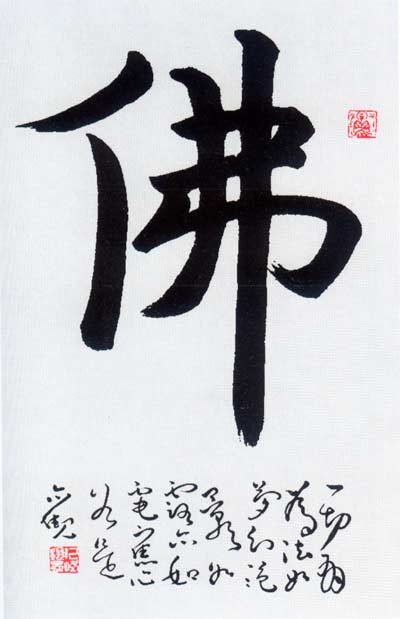 佛
一切有
為法如
夢幻泡
影如
露亦如
電應
是
觀